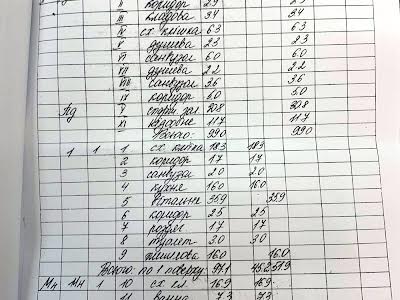 II коридор 29 29
III кладова 34 34
IV сх. клітка 63 63
V душева 23 23
VI санвузол 60 60
VII душева 22 22
VIII санвузол 36 36
IX коридор 50 50
Пд X спорт. зал 308 308
XI кладова 117 117
Всього: 990 990
1 1 1 сх клітка 183 183
2 коридор 17 17
3 санвузол 20 20
4 кухня 160 160
5 вітальня 359 359
6 коридор 25 25
7 17 17
8 туалет 30 30
9 160 160
Всього: по 1 поверху: 971 452 519
Мн Мн 1 10 сх кл 169 169
11 ванна 73 73